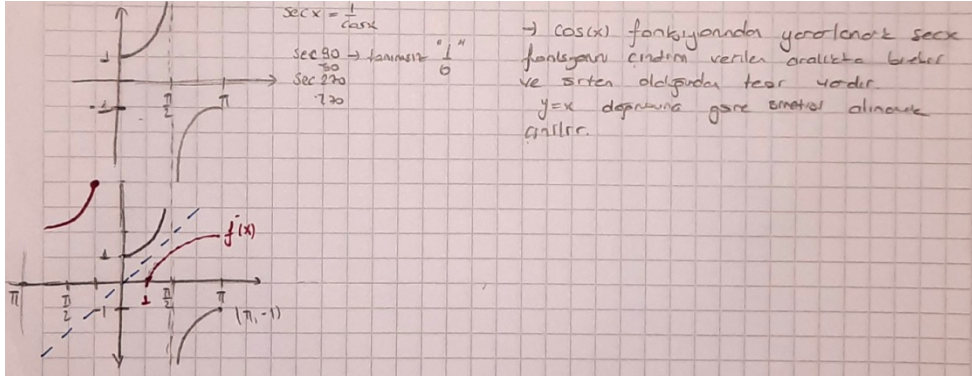 secx = 1/cosx
sec90 → tanımsız "1/0"
90
sec270
270
→ cos(x) fonksiyonundan yararlanarak secx
fonksiyonu çizdim verilen aralıkta birebir
ve örten olduğundan tersi vardır.
y=x doğrusuna göre simetrisi alınarak
çizilir.
1
-1
π/2
π
1
f⁻(x)
π
π/2
-1
1
π/2
π
(π,-1)